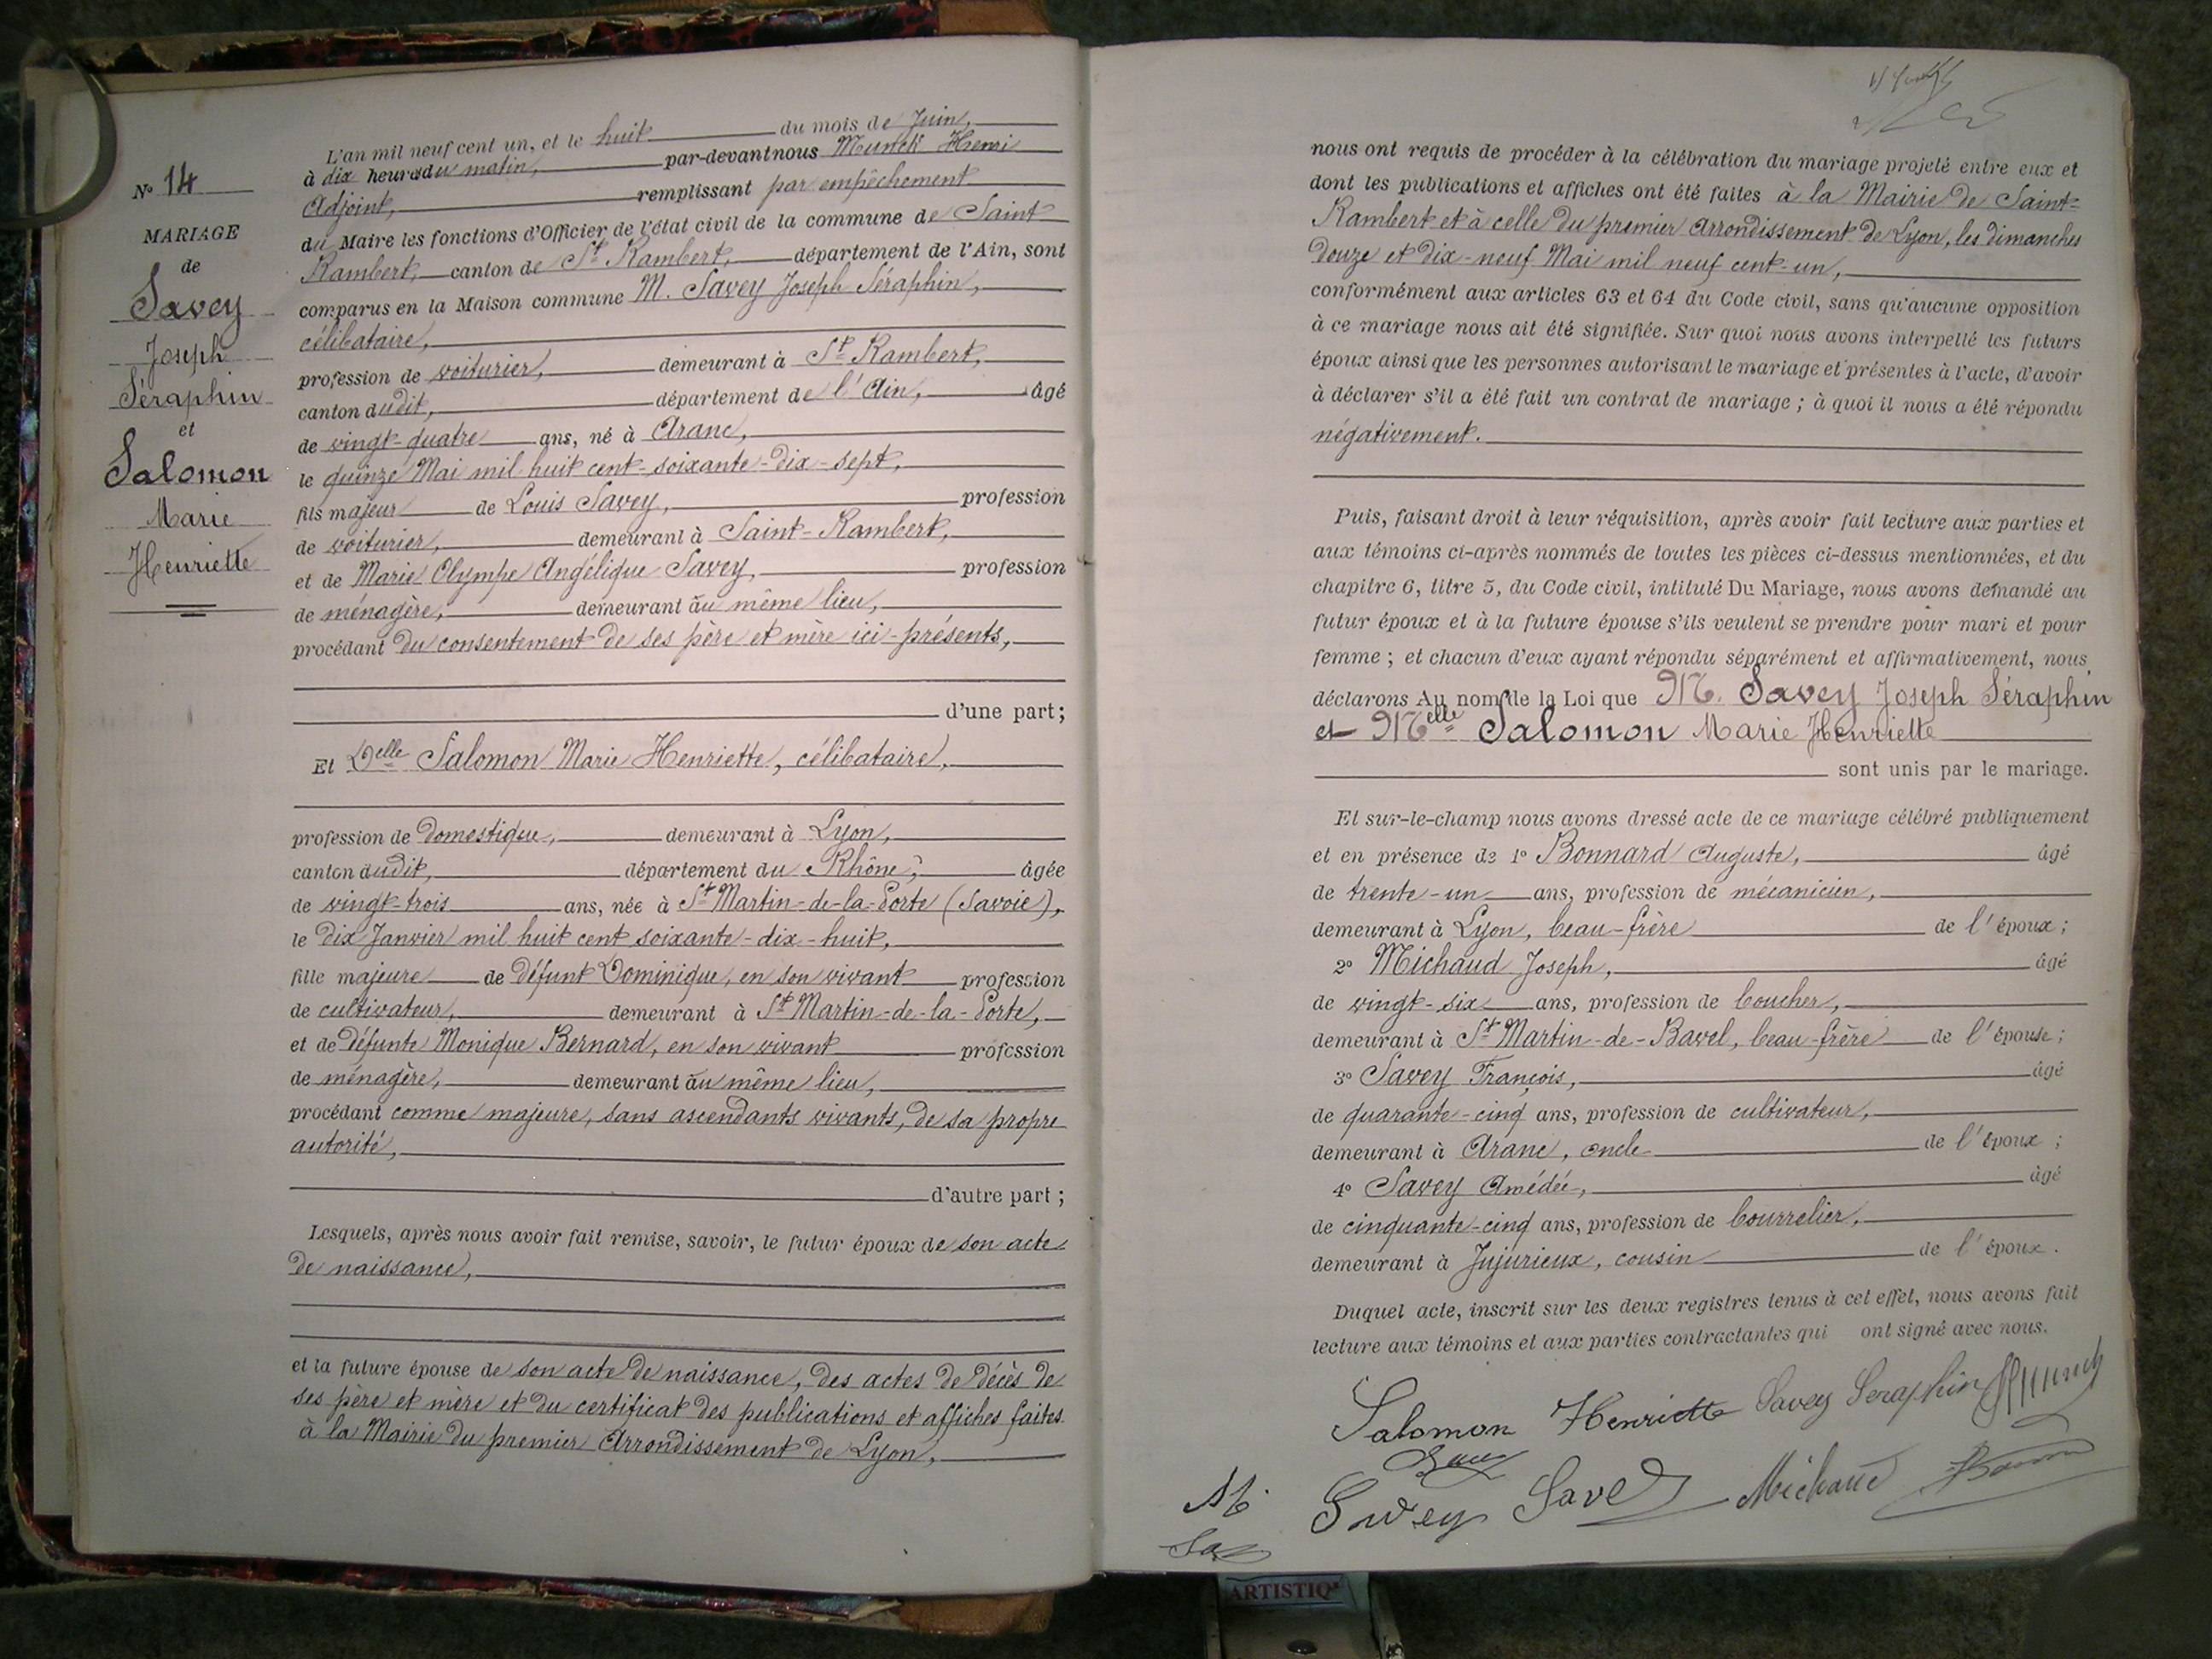 N° 14
MARIAGE
de
Savey
Joseph
Séraphin
et
Salomon
Marie
Henriette
L'an mil neuf cent un, et le huit du mois de Juin,
à dix heures du matin, par-devant nous Münck Henri
Adjoint, remplissant par empêchement
du Maire les fonctions d'Officier de l'état civil de la commune de Saint
Rambert, canton de St Rambert, département de l'Ain, sont
comparus en la Maison commune M. Savey Joseph Séraphin,
célibataire,
profession de voiturier, demeurant à St Rambert,
canton dudit, département de l'Ain, âgé
de vingt-quatre ans, né à Aranc,
le quinze Mai mil huit cent-soixante-dix-sept,
fils majeur de Louis Savey, profession
de voiturier, demeurant à Saint-Rambert,
et de Marie Olympe Angélique Savey, profession
de ménagère, demeurant au même lieu,
procédant du consentement de ses père et mère ici-présents,
d'une part;
Et Delle Salomon Marie Henriette, célibataire,
profession de domestique, demeurant à Lyon,
canton dudit, département du Rhône, âgée
de vingt-trois ans, née à St Martin-de-la-Porte (Savoie),
le dix Janvier mil huit cent soixante-dix-huit,
fille majeure de défunt Dominique, en son vivant profession
de cultivateur, demeurant à St Martin-de-la-Porte,
et de défunte Monique Bernard, en son vivant profession
de ménagère, demeurant au même lieu,
procédant comme majeure, sans ascendants vivants, de sa propre
autorité,
d'autre part;
Lesquels, après nous avoir fait remise, savoir, le futur époux de son acte
de naissance,
et la future épouse de son acte de naissance, des actes de décès de
ses père et mère et du certificat des publications et affiches faites
à la Mairie du premier Arrondissement de Lyon,
nous ont requis de procéder à la célébration du mariage projeté entre eux et
dont les publications et affiches ont été faites à la Mairie de Saint-
Rambert et à celle du premier Arrondissement de Lyon, les dimanches
douze et dix-neuf Mai mil neuf cent-un,
conformément aux articles 63 et 64 du Code civil, sans qu'aucune opposition
à ce mariage nous ait été signifiée. Sur quoi nous avons interpellé les futurs
époux ainsi que les personnes autorisant le mariage et présentes à l'acte, d'avoir
à déclarer s'il a été fait un contrat de mariage; à quoi il nous a été répondu
négativement.
Puis, faisant droit à leur réquisition, après avoir fait lecture aux parties et
aux témoins ci-après nommés de toutes les pièces ci-dessus mentionnées, et du
chapitre 6, titre 5, du Code civil, intitulé Du Mariage, nous avons demandé au
futur époux et à la future épouse s'ils veulent se prendre pour mari et pour
femme; et chacun d'eux ayant répondu séparément et affirmativement, nous
déclarons Au nom de la Loi que M. Savey Joseph Séraphin
et Melle Salomon Marie Henriette
sont unis par le mariage.
Et sur-le-champ nous avons dressé acte de ce mariage célébré publiquement
et en présence de 1° Bonnard Auguste, âgé
de trente-un ans, profession de mécanicien,
demeurant à Lyon, beau-frère de l'époux;
2° Michaud Joseph, âgé
de vingt-six ans, profession de boucher,
demeurant à St Martin-de-Bavel, beau-frère de l'épouse;
3° Savey François, âgé
de quarante-cinq ans, profession de cultivateur,
demeurant à Aranc, oncle de l'époux;
4° Savey Amédée, âgé
de cinquante-cinq ans, profession de bourrelier,
demeurant à Jujurieux, cousin de l'époux.
Duquel acte, inscrit sur les deux registres tenus à cet effet, nous avons fait
lecture aux témoins et aux parties contractantes qui ont signé avec nous.
Salomon Henriette Savey Seraphin
Savey Savey Michaud
ARTISTIQ